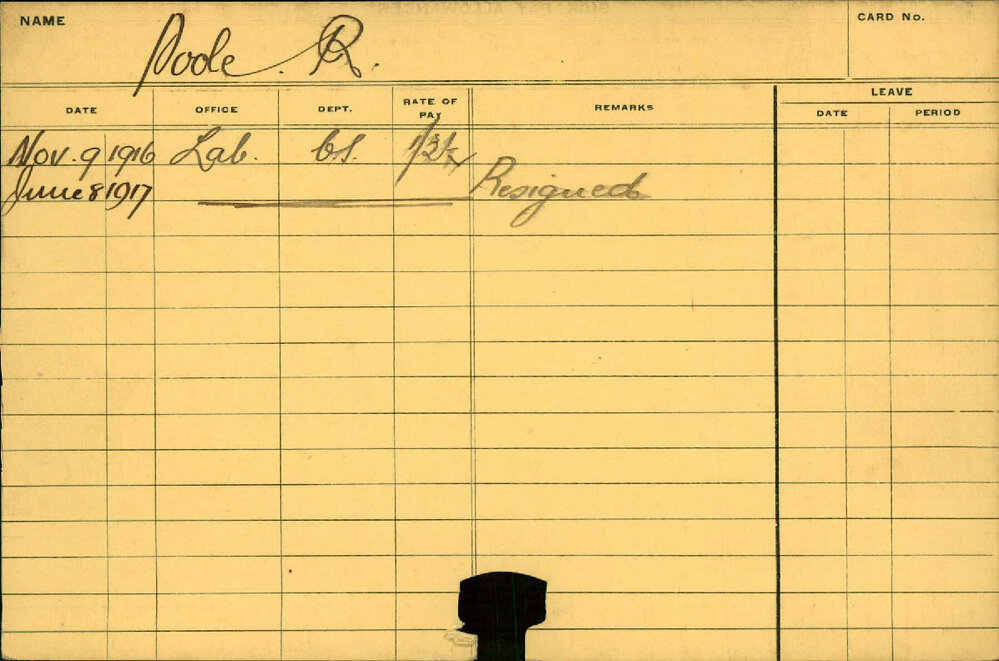 NAME Poole. R. CARD No.
DATE OFFICE DEPT. RATE OF PAY REMARKS LEAVE
DATE PERIOD
Nov. 9 1916 Lab.
June 8 1917 Resigned